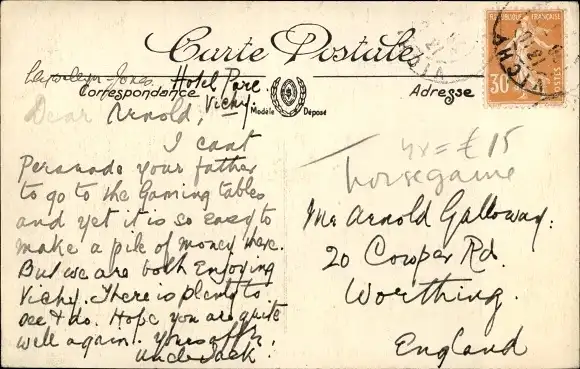 Carte Postale
Hotel Parc
Correspondance
Vichy.
Modèle Déposé
Adresse
REPUBLIQUE FRANÇAISE
30c
POSTES
VICHY
Dear Arnold,
I cant
Persuade your father
to go to the Gaming tables
and yet it is so easy to
make a pile of money there.
But we are both Enjoying
Vichy. There is plenty to
see & do. Hope you are quite
well again. Yours affly.
Uncle Jack.
4x = £15
horsegame
Mr Arnold Galloway.
20 Cowper Rd.
Worthing.
England